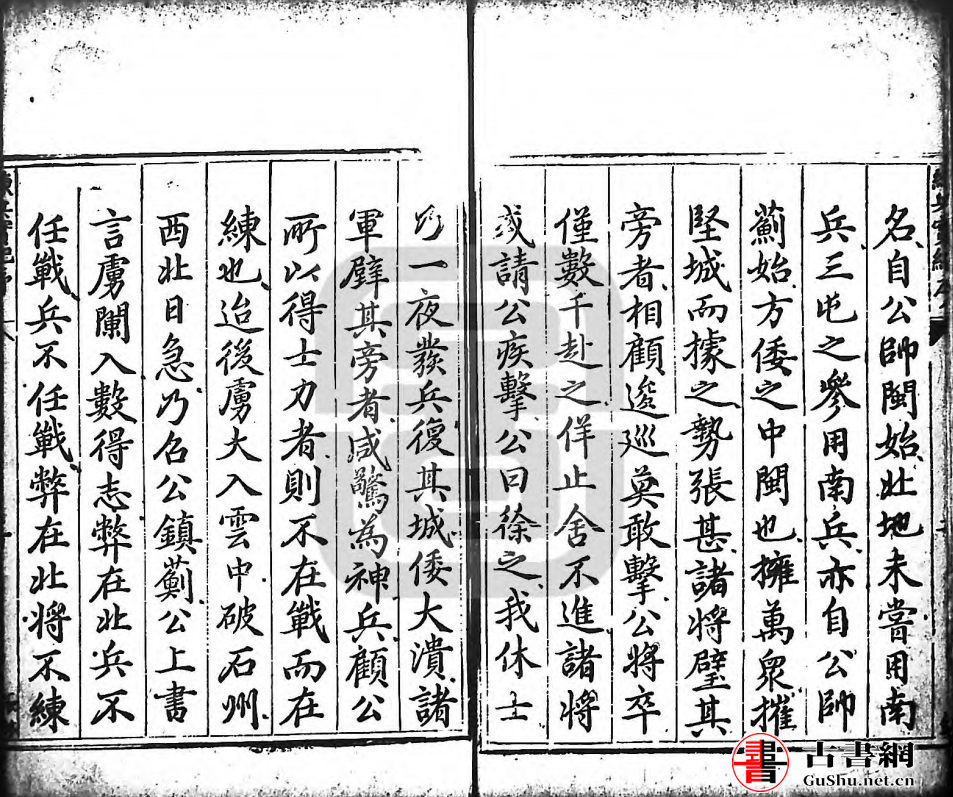 名自公帥閩始北地未嘗用南
兵三屯之參用南兵亦自公帥
薊始方倭之中閩也擁萬眾摧
堅城而據之勢張甚諸將壁其
旁者相顧逡巡莫敢擊公將卒
僅數千赴之佯止舍不進諸將
或請公疾擊公曰徐之我休士
乃一夜發兵復其城倭大潰諸
軍壁其旁者咸驚為神兵顧公
所以得士力者則不在戰而在
練也迨後虜大入雲中破石州
西北日急乃召公鎮薊公上書
言虜闌入數得志弊在北兵不
任戰兵不任戰弊在北將不練
書 古書網
GuShu.net.cn